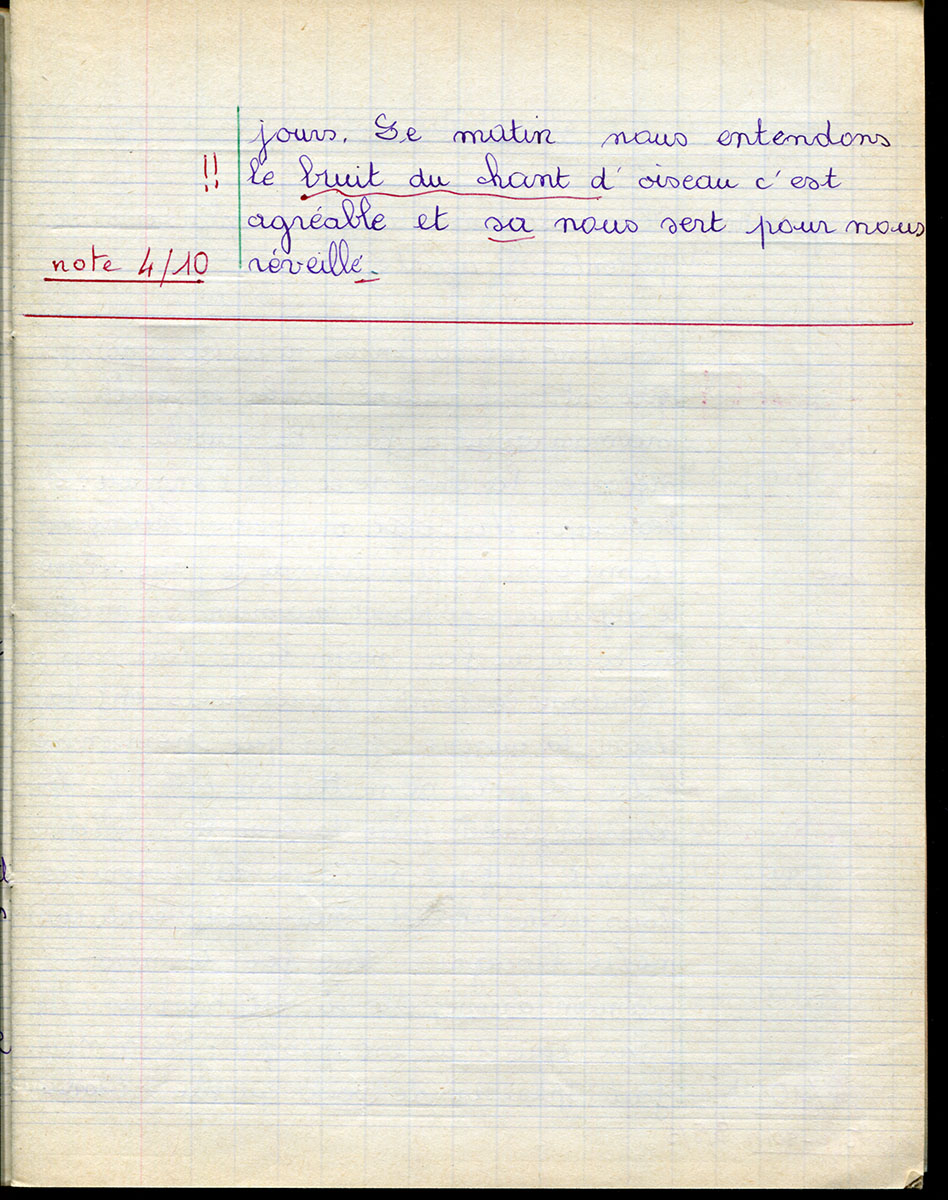 jours. Le matin nous entendons
!! le bruit du chant d'oiseau c'est
agréable et sa nous sert pour nous
note 4/10 réveillé.